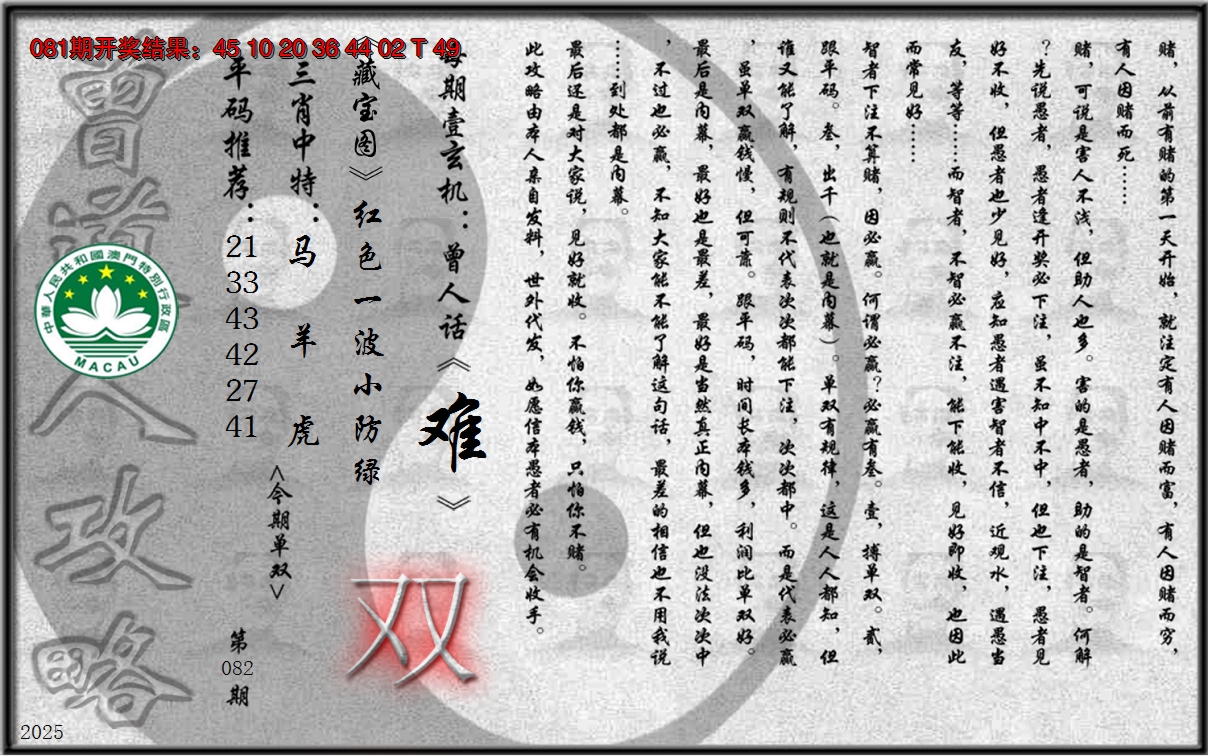 081期开奖结果：45 10 20 36 44 02 T 49
赌，从前有赌的第一天开始，就注定有人因赌而富，有人因赌而穷，
有人因赌而死……
赌，可说是害人不浅，但助人也多。害的是愚者，助的是智者。何解
？先说愚者，愚者逢开奖必下注，虽不知中不中，但也下注，愚者见
好不收，但愚者也少见好，应知愚者遇害智者不信，近观水，遇愚当
友，等等……而智者，不智必赢不注，能下能收，见好即收，也因此
而常见好……
智者下注不算赌，因必赢。何谓必赢？必赢有叁。壹，搏单双。贰，
跟平码。叁，出千（也就是内幕）。单双有规律，这是人人都知，但
谁又能了解，有规则不代表次次都能下注，次次都中。而是代表必赢
，虽单双赢钱慢，但可靠。跟平码，时间长本钱多，利润比单双好。
最后是内幕，最好也是最差，最好是当然真正内幕，但也没法次次中
，不过也必赢，不知大家能不能了解这句话，最差的相信也不用我说
……到处都是内幕。
最后还是对大家说，见好就收。不怕你赢钱，只怕你不赌。
此攻略由本人亲自发料，世外代发，如愿信本愚者必有机会收手。
每期壹玄机：曾人话《难》
《藏宝图》红色一波小防绿
双
三肖中特：马 羊 虎
<今期单双>
平码推荐：
21
33
43
42
27
41
第
082
期
曾道人攻略
中華人民共和國澳門特別行政區
MACAU
2025